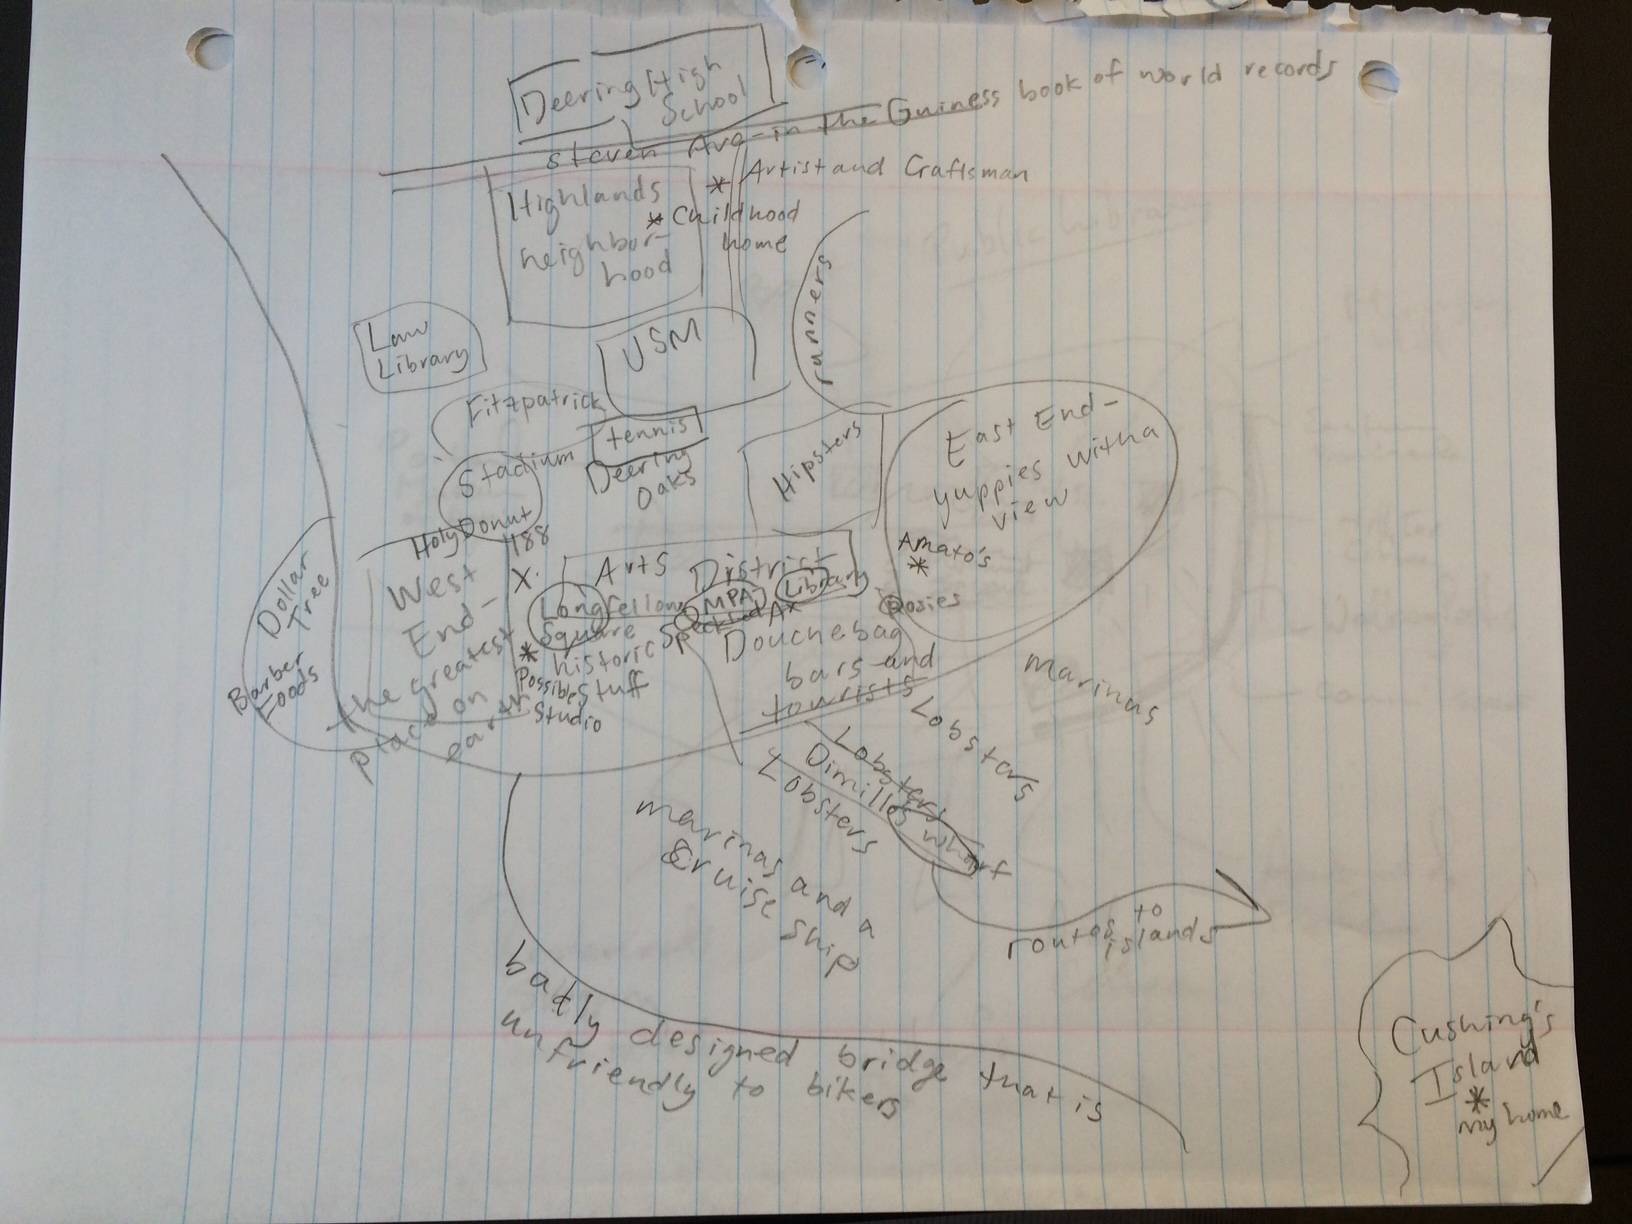 Deering High
School
Steven Ave-in the Guiness book of world records
* Artist and Craftsman
Highlands
neighbor-
hood
* Childhood
home
runners
Law
Library
USM
Fitzpatrick
Stadium
tennis
Deering
Oaks
Hipsters
East End-
yuppies with a
view
Holy Donut
188
X
Amato's
*
Rosies
Dollar
Tree
Barber
Foods
West
End-
the greatest
place on
earth
Arts District
Longfellow
Square
historic
stuff
MPA
Library
Speckled Ax
*
Possible
Studio
Douchebag
bars and
tourists
marinas
Lobsters
Lobsters
Dimillos wharf
Lobsters
marinas and a
Cruise ship
routes to
islands
badly designed bridge that is
unfriendly to bikers
Cushing's
Island
*
my home